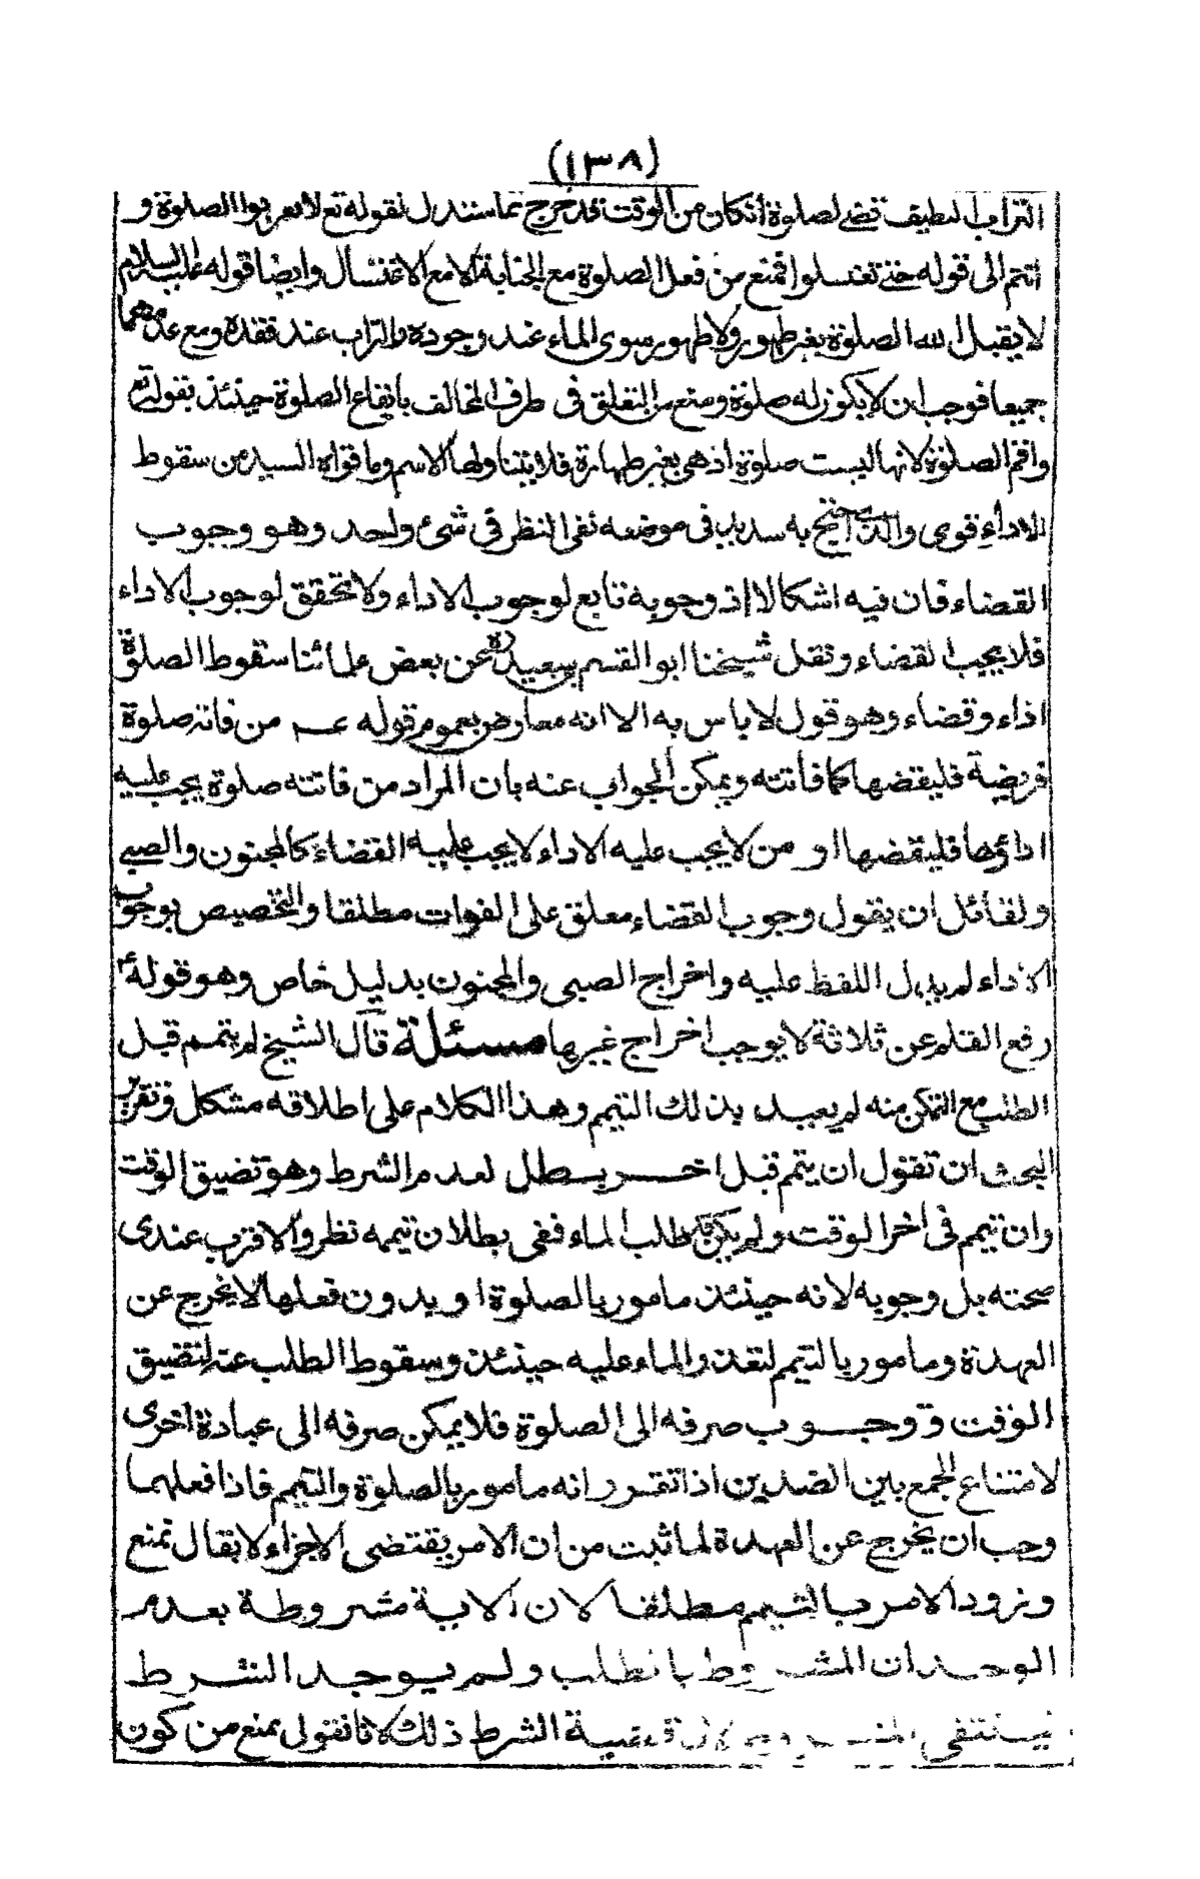 (١٣٨)
التراب النظيف قضى لصلوة ان كان من الوقت قد خرج ثم استدل بقوله تع لا تقربوا الصلوة و
انتم الى قوله حتى تغتسلوا فمنع من فعل الصلوة مع الجنابة الا مع الاغتسال وايضا قوله عليه السلام
لا يقبل الله الصلوة بغير طهور ولا طهور سوى الماء عند وجوده والتراب عند فقده ومع عدمهما
جميعا فوجب ان لا يكون له صلوة ومنع من التعلق فى طرف المخالف بايقاع الصلوة حينئذ بقوله تع
واقم الصلوة لانها ليست صلوة اذ هى بغير طهارة فلا يتناولها الاسم وما قواه السيد من سقوط
الاداء قوى والذى احتج به سديد فى موضعه نفى النظر فى شىء واحد وهو وجوب
القضاء فان فيه اشكالا اذ وجوبه تابع لوجوب الاداء ولا تحقق لوجوب الاداء
فلا يجب القضاء ونقل شيخنا ابو القسم بن سعيد ره عن بعض علمائنا سقوط الصلوة
اداء وقضاء وهو قول لا باس به الا انه معارض بعموم قوله عــم من فاتته صلوة
فريضة فليقضها كما فاتته ويمكن الجواب عنه بان المراد من فاتته صلوة يجب عليه
ادائها فليقضها او من لا يجب عليه الاداء لا يجب عليه القضاء كالمجنون والصبى
ولقائل ان يقول وجوب القضاء معلق على الفوات مطلقا والتخصيص بوجوب
الاداء لم يدل اللفظ عليه واخراج الصبى والمجنون بدليل خاص وهو قوله ع
رفع القلم عن ثلاثة لا يوجب اخراج غيرها مسئلة قال الشيخ لو يتمم قبل
الطلب مع التمكن منه لم يعيد بذلك التيمم وهذا الكلام على اطلاقه مشكل وتقرير
البحث ان تقول ان يتمم قبل اخر يبطل لعدم الشرط وهو تضيق الوقت
وان تيمم فى اخر الوقت ولم يكن قد طلب الماء ففى بطلان تيممه نظر والاقرب عندى
صحته بل وجوبه لانه حينئذ مامور بالصلوة او بدون فعلها لا يخرج عن
العهدة ومامور بالتيمم لتعذر الماء عليه حينئذ وسقوط الطلب عنه لتضيق
الوقت ووجوب صرفه الى الصلوة فلا يمكن صرفه الى عبادة اخرى
لامتناع الجمع بين الضدين اذا تقرر انه مامور بالصلوة والتيمم فاذا فعلهما
وجب ان يخرج عن العهدة لما ثبت من ان الامر يقتضى الاجزاء لا يقال نمنع
ورود الامر بالتيمم مطلقا لان الاية مشروطة بعدم
الوجدان المشروط بالطلب ولم يوجد الشرط
فينتفى قضية الشرط ذلك لانا نقول نمنع من كون